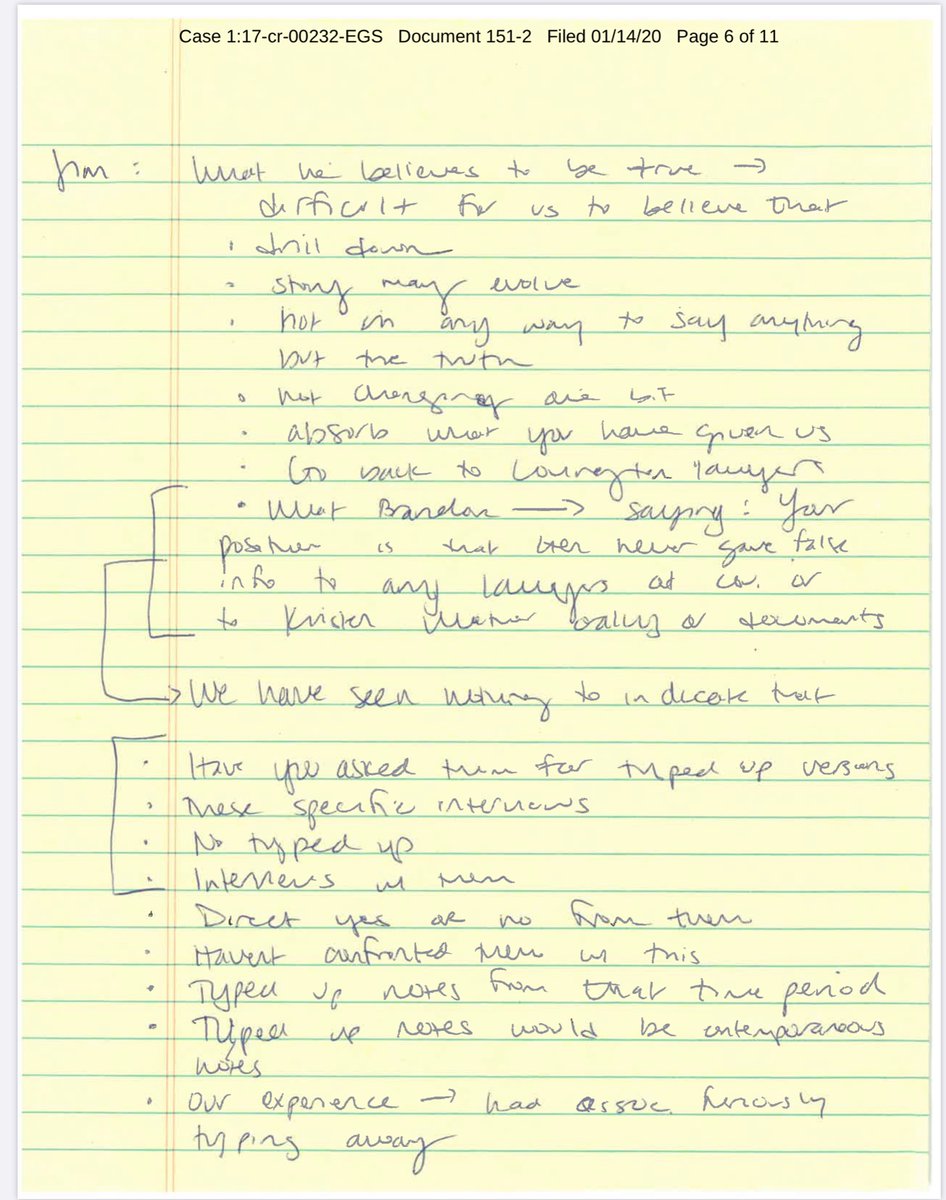 Case 1:17-cr-00232-EGS Document 151-2 Filed 01/14/20 Page 6 of 11
Jim : What he believes to be true →
difficult for us to believe that
• drill down
• story may evolve
• not in any way to say anything
but the truth
• not changing one bit
• absorb what you have given us
• Go back to Covington lawyers
• What Brandon → saying : Your
position is that been never gave false
info to any lawyers at cov. or
to Kristen orally or documents
→ We have seen nothing to indicate that
• Have you asked them for typed up versions
• These specific interviews
• No typed up
• Interviews w them
• Direct yes or no from them
• Havent confronted them w this
• Typed up notes from that time period
• Typed up notes would be contemporaneous
notes
• Our experience → had assoc. furiously
typing away